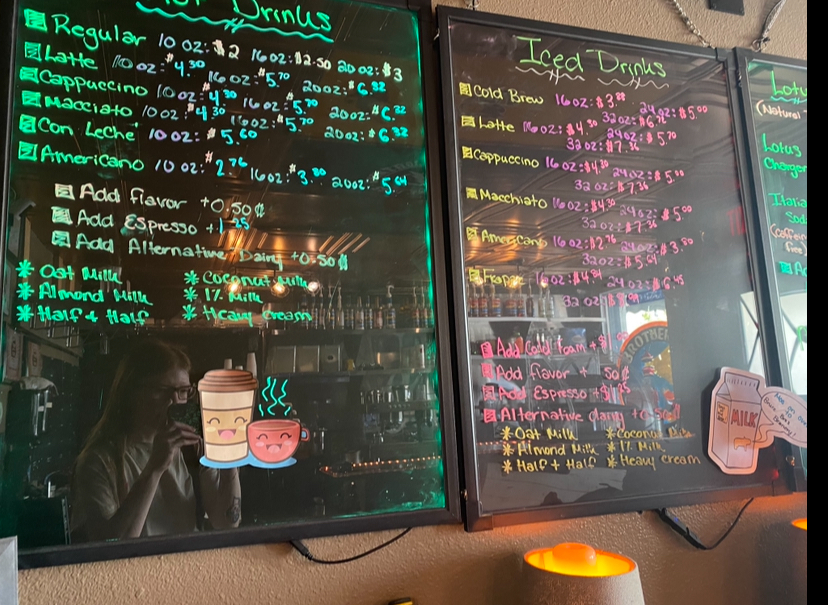 Drinks
Regular 10 oz: $2 16 oz: $2.50 20 oz: $3
Latte 10 oz: $4.30 16 oz: $5.70 20 oz: $6.32
Cappuccino 10 oz: $4.30 16 oz: $5.70 20 oz: $6.32
Macciato 10 oz: $4.30 16 oz: $5.70 20 oz: $6.32
Con Leche 10 oz: $5.60
Americano 10 oz: $2.76 16 oz: $3.80 20 oz: $5.04
Add flavor +0.50¢
Add Espresso +1.25
Add Alternative Dairy +0.50¢
* Oat Milk * Coconut Milk
* Almond Milk * 1% Milk
* Half + Half * Heavy Cream
Iced Drinks
Cold Brew 16 oz: $3 24 oz: $5.00
32 oz: $6
Latte 16 oz: $4.30 24 oz: $5.70
32 oz: $7.36
Cappuccino 16 oz: $4.30 24 oz: $5.00
32 oz: $7.36
Macchiato 16 oz: $4.30 24 oz: $5.00
32 oz: $7.36
Americano 16 oz: $2.76 24 oz: $3.80
32 oz: $5.04
Frappe 16 oz: 24 oz: $6.45
32 oz:
Add Cold foam +$1
Add flavor + 50¢
Add Espresso +$1.25
Alternative dairy +0.50
* Oat Milk * Coconut Milk
* Almond Milk * 1% Milk
* Half + Half * Heavy cream
MILK
(Natural
Lotus
Charger
Soda
(caffeine
free)